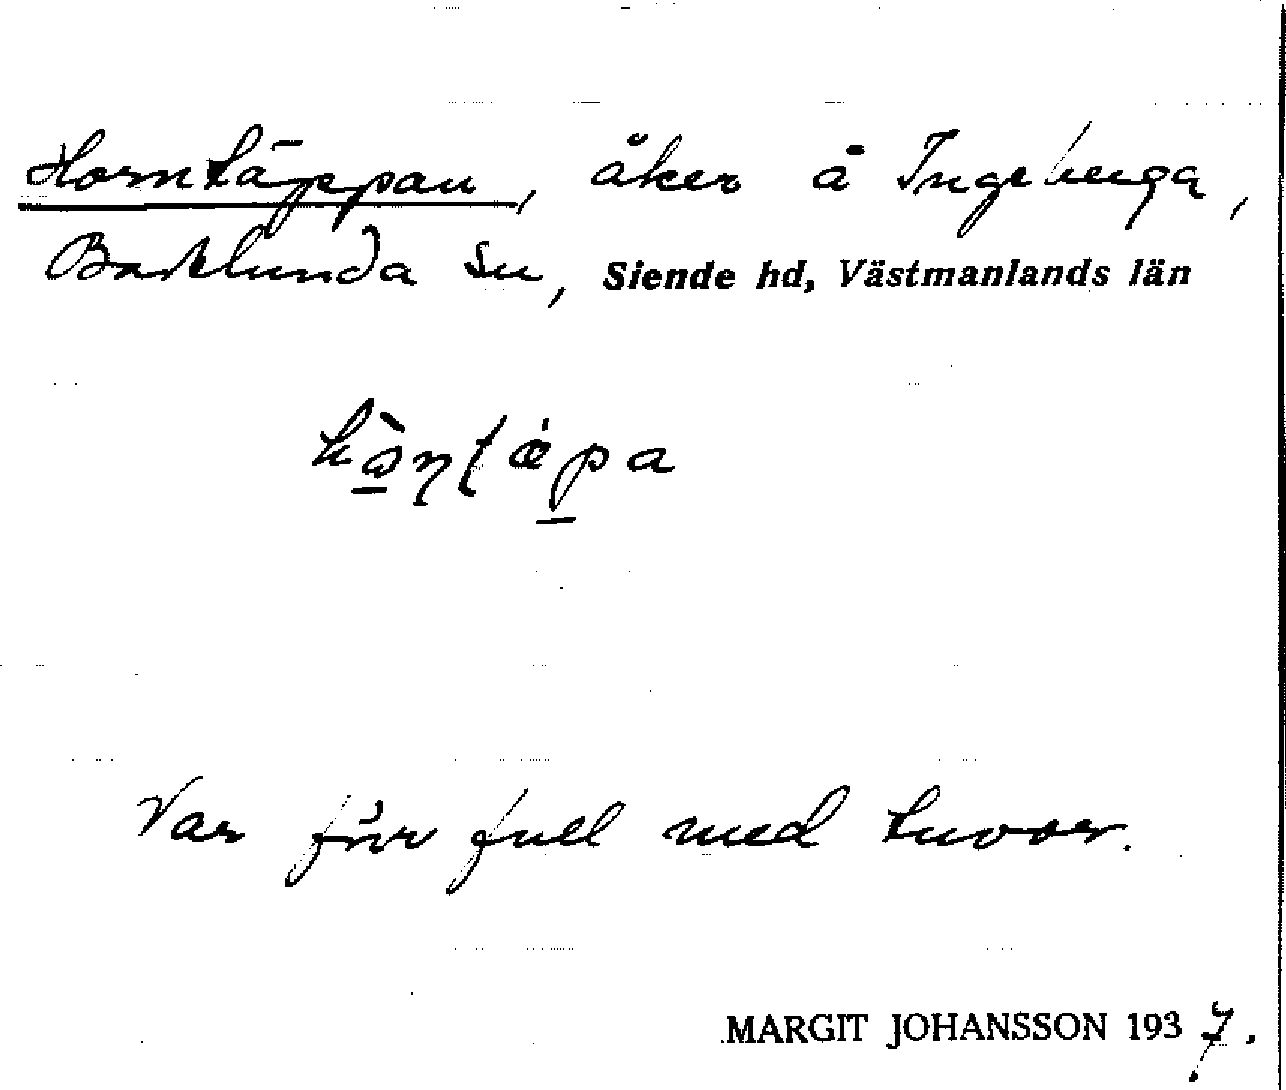 Horntäppan, åker å Ingeberga,
Barklunda sn, Siende hd, Västmanlands län
Var förr full med tuvor.
MARGIT JOHANSSON 1937.